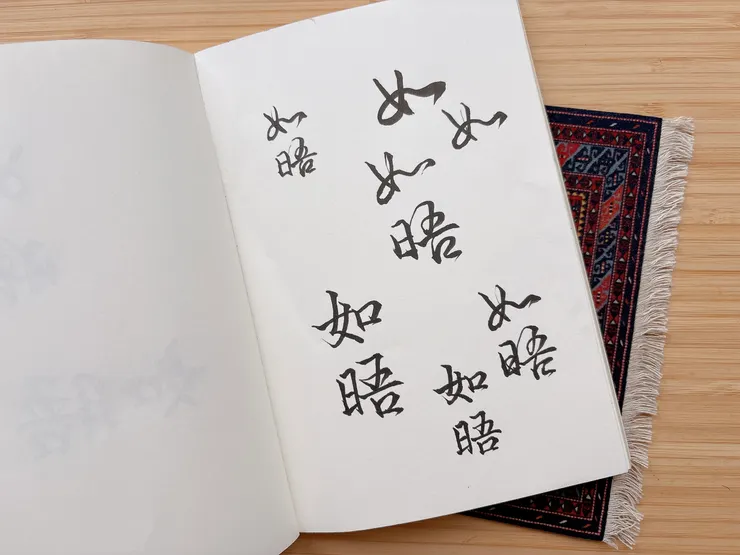 如
晤
如
如
如
晤
如
晤
如
晤
如
晤